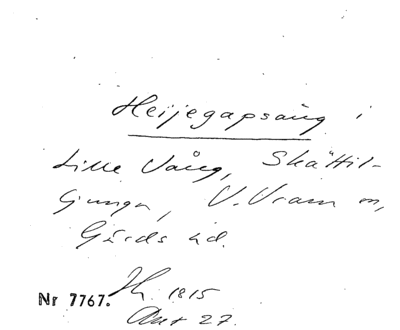 Heijegapsång i
Lille Vång, Skättil-
junga, V. Vram m,
Gärds hd.
Nr 7767. 1815
27.